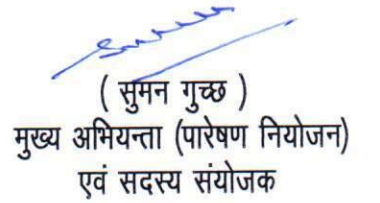 ( सुमन गुच्छ )
मुख्य अभियन्ता (पारेषण नियोजन)
एवं सदस्य संयोजक